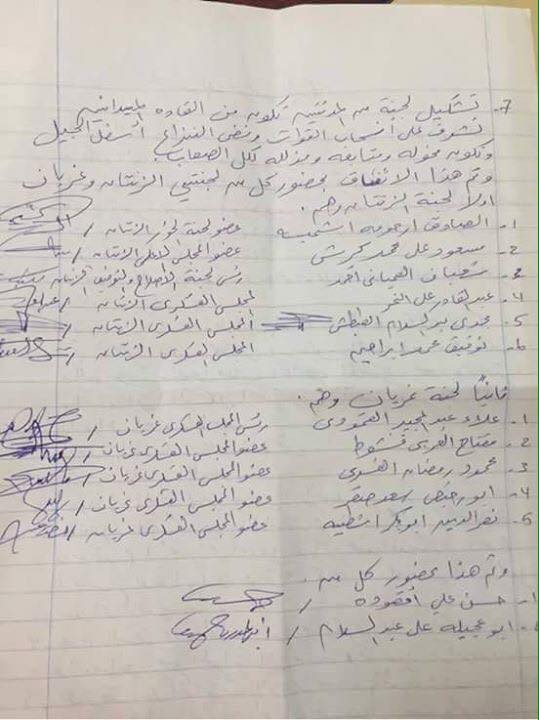 7- تشكيل لجنة من المدينتين تكون من القاده الميدانيين
تشرف على انسحاب القوات وفض النزاع أسفل الجبل
وتكون مخوله ومتابعه ومذلله لكل الصعاب.
وتم هذا الاتفاق بحضور كل من لجنتي الزنتان وغريان
اولاً لجنة الزنتان وهم.
1- الصادق ارحومه عضو لجنة الزنتان
2- مسعود على محمد عضو المجلس الاعلى الزنتان
3- شعبان احمد رئيس لجنة الاصلاح والتوفيق الزنتان
4- عبدالقادر على المجلس العسكري الزنتان /
5- مجدى عبدالسلام المجلس العسكري الزنتان /
6- توفيق محمد ابراهيم المجلس العسكري الزنتان /
ثانياً لجنة غريان وهم.
1- علاء عبدالمجيد العمودى رئيس المجلس العسكرى غريان /
2- مفتاح العربى عضو المجلس العسكرى غريان /
3- محمود رمضان عضو المجلس العسكرى غريان /
4- ابو سعد عضو المجلس العسكرى غريان /
5- نصرالدين ابوبكر عضو المجلس العسكرى غريان /
وتم هذا بحضور كل من.
1- حسن على /
2- ابو عجيله على عبدالسلام /